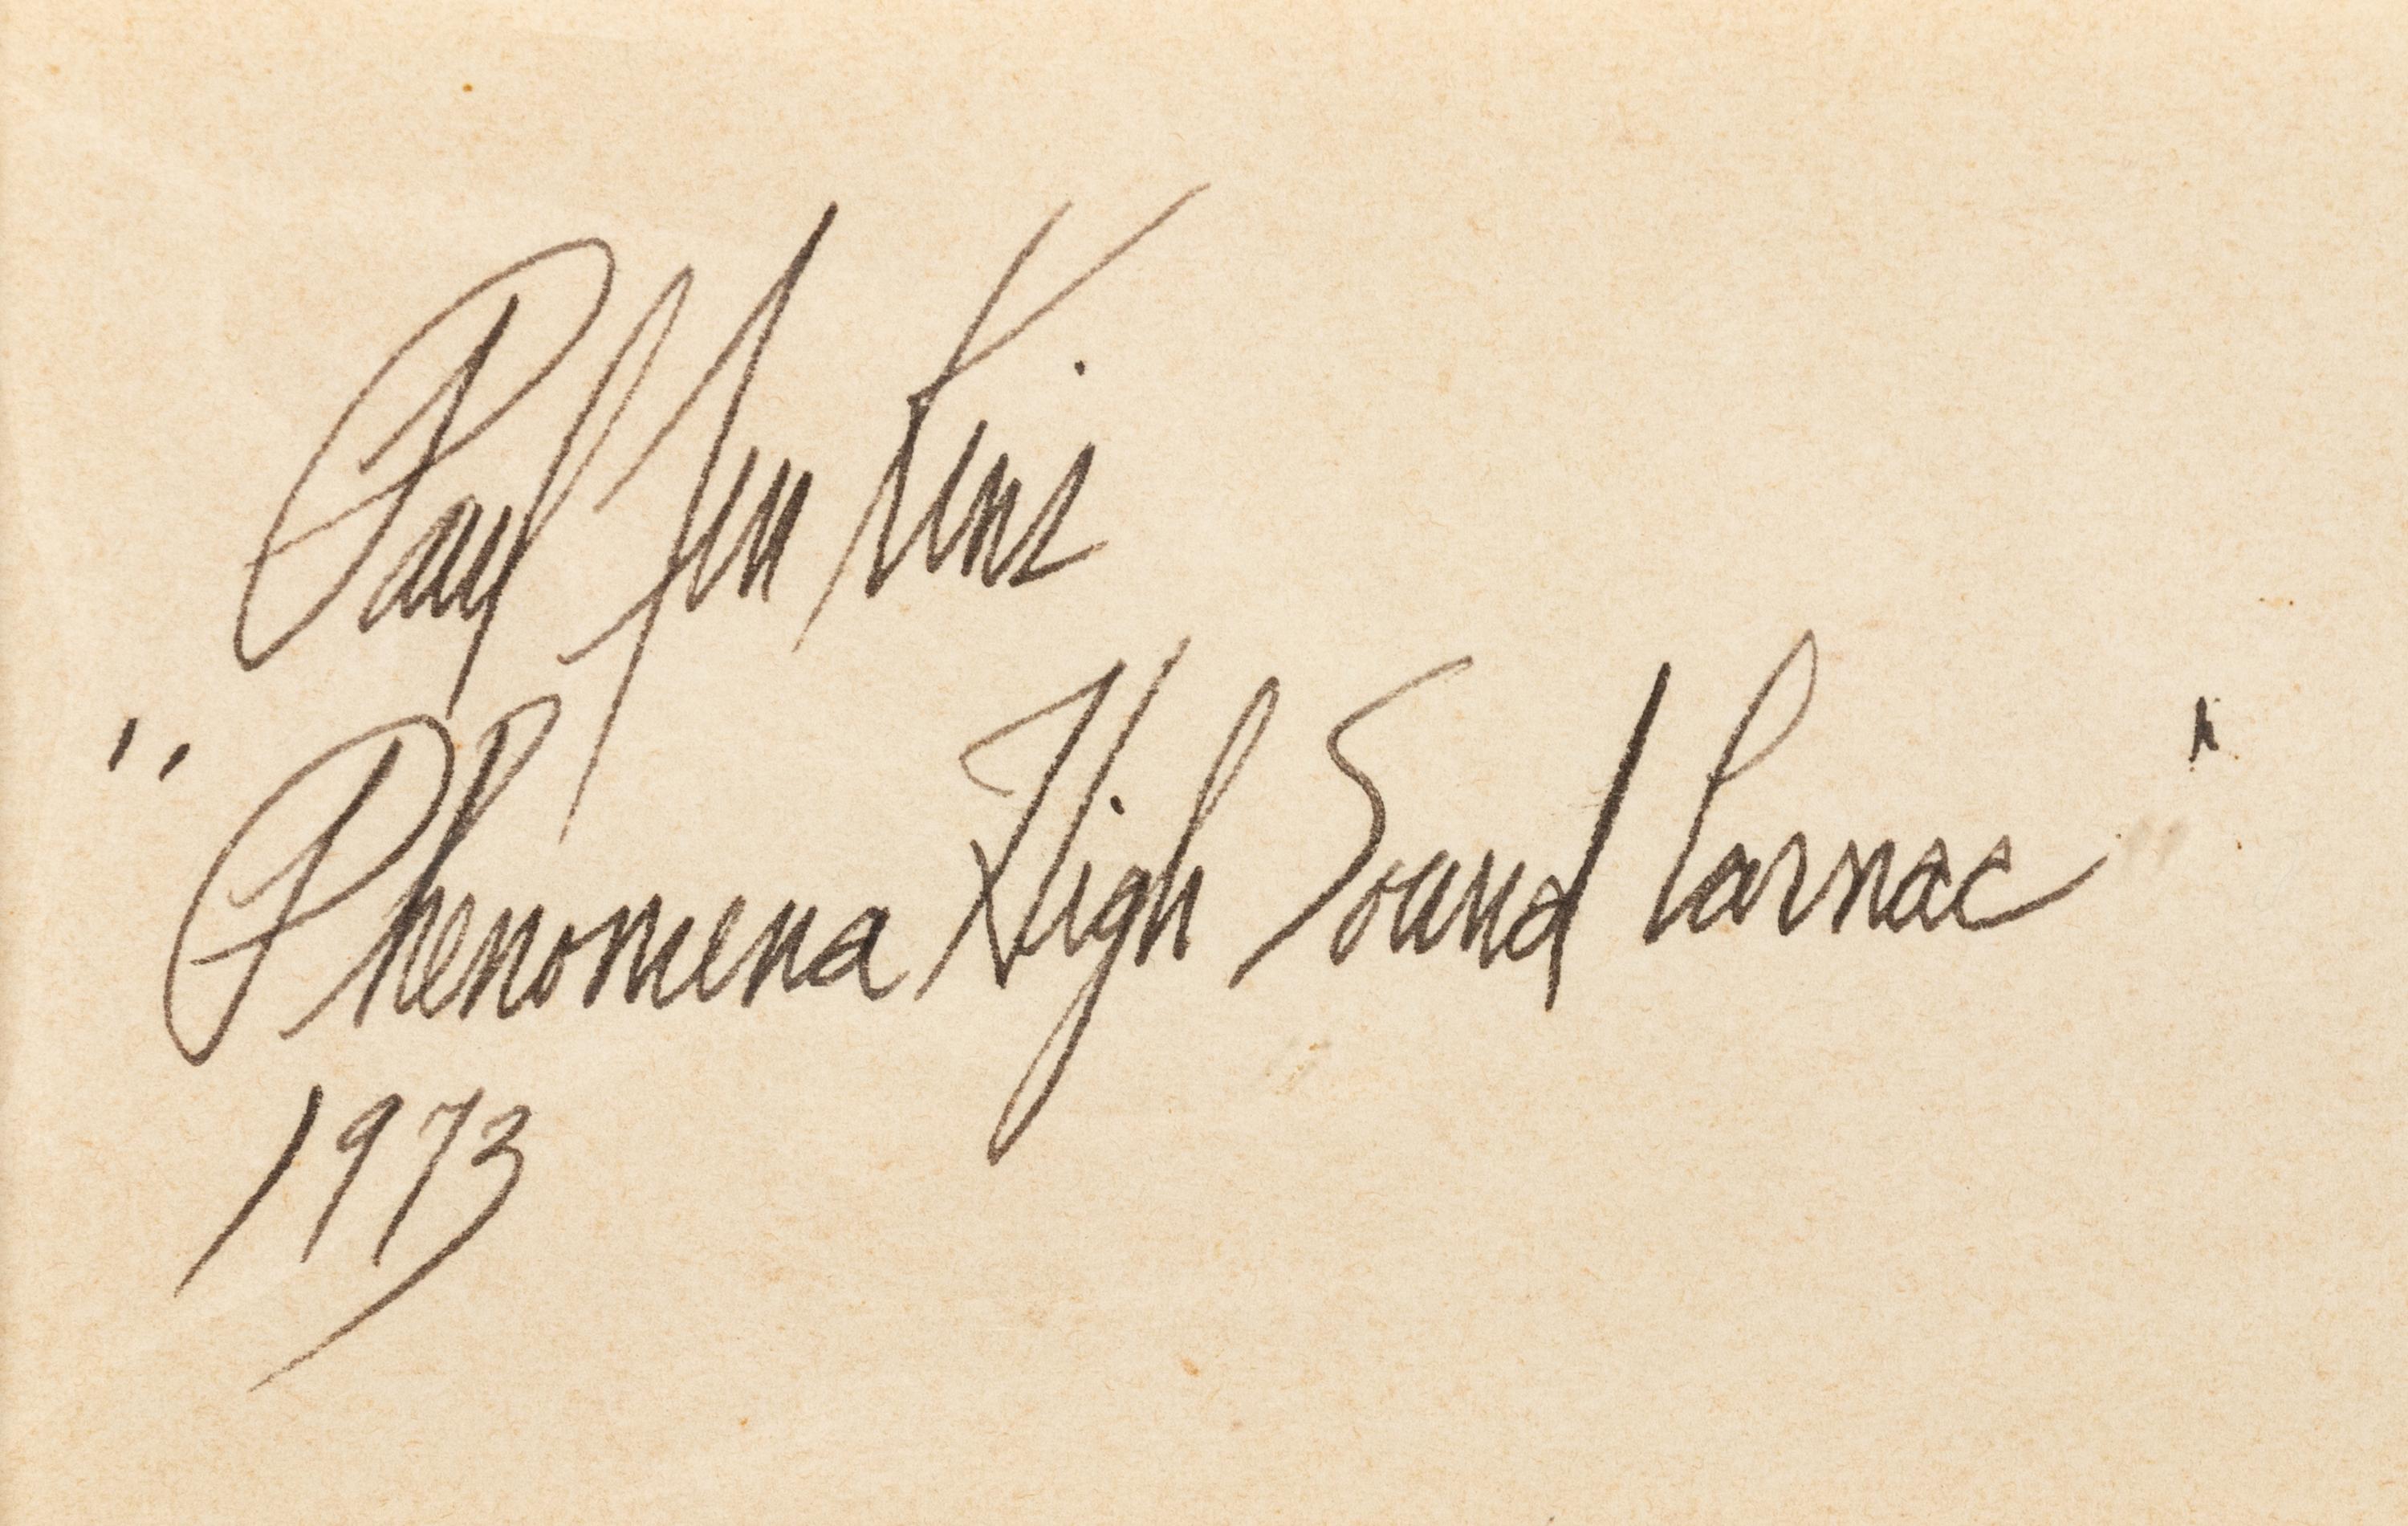 Paul Jenkins
"Phenomena High Sound Carnac"
1973